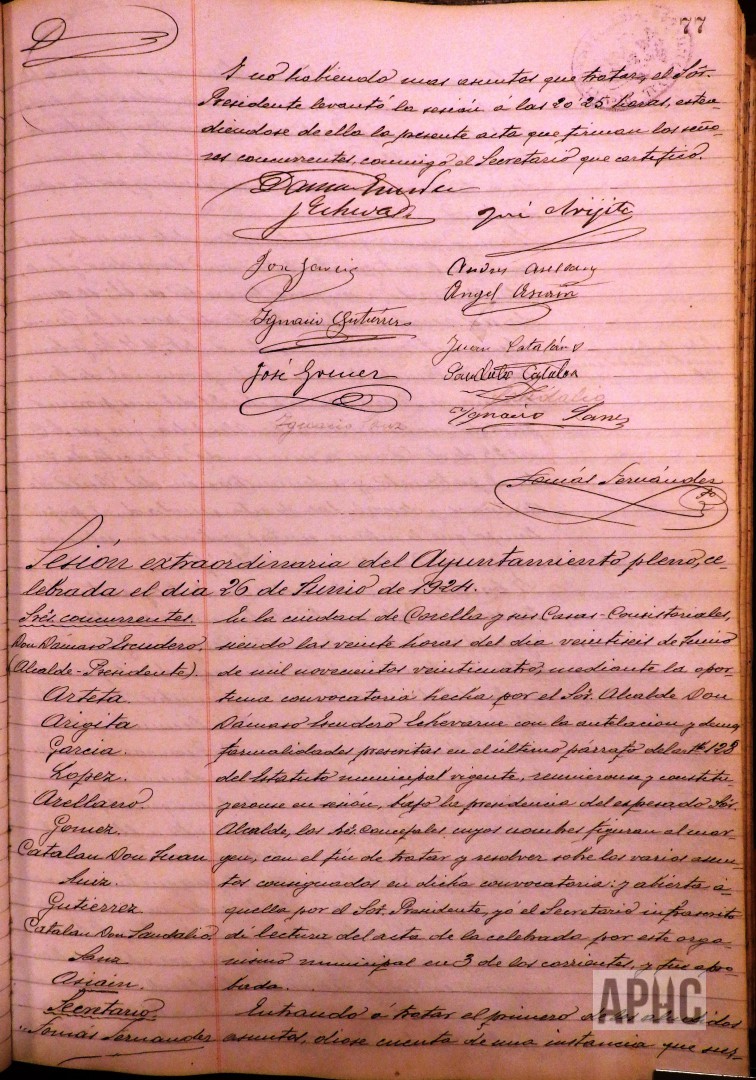 77
Y no habiendo mas asuntos que tratar, el Sór.
Presidente levantó la sesión á las 20'25 horas, exten-
diéndose de ella la presente acta que firman los seño-
res concurrentes, conmigo el Secretario que certifico.
Damaso Escudero
José Arigita
Andrés Arellano
Angel Asiain
Ignacio Gutiérrez
Juan Catalán
José Gomez
Sandalio Catalan
Sandalio
Ignacio Sanz
Ignacio Sanz
Tomás Fernández
Sesión extraordinaria del Ayuntamiento pleno, ce-
lebrada el dia 26 de Junio de 1924.
Srés. concurrentes.
Don Dámaso Escudero.
(Alcalde-Presidente).
Arteta.
Arigita
Garcia.
Lopez.
Arellano.
Gomez.
Catalan Don Juan
Luiz.
Gutierrez
Catalan Don Sandalio
Sanz
Asiain.
Secretario
Tomás Fernandez
En la ciudad de Corella y sus Casas-Consistoriales,
siendo las veinte horas del dia veintiseis de Junio
de mil novecientos veinticuatro, mediante la opor-
tuna convocatoria hecha por el Sór. Alcalde Don
Dámaso Escudero Echevarne con la antelacion y demas
formalidades prescritas en el último párrafo del artº 128
del Estatuto municipal vigente, reunieronse y constitu-
yeronse en sesión, bajo la presidencia del expesado Sór.
Alcalde, los Srés. Concejales cuyos nombres figuran al mar-
gen, con el fin de tratar y resolver sobre los varios asun-
tos consignados en dicha convocatoria: y abierta a-
quella por el Sór. Presidente, yó el Secretario infrascrito
di lectura del acta de la celebrada por este orga-
nismo municipal en 3 de los corrientes, y fue apro-
bada.
Entrando á tratar el primero de los aludidos
asuntos, diose cuenta de una instancia que sus-
APHC